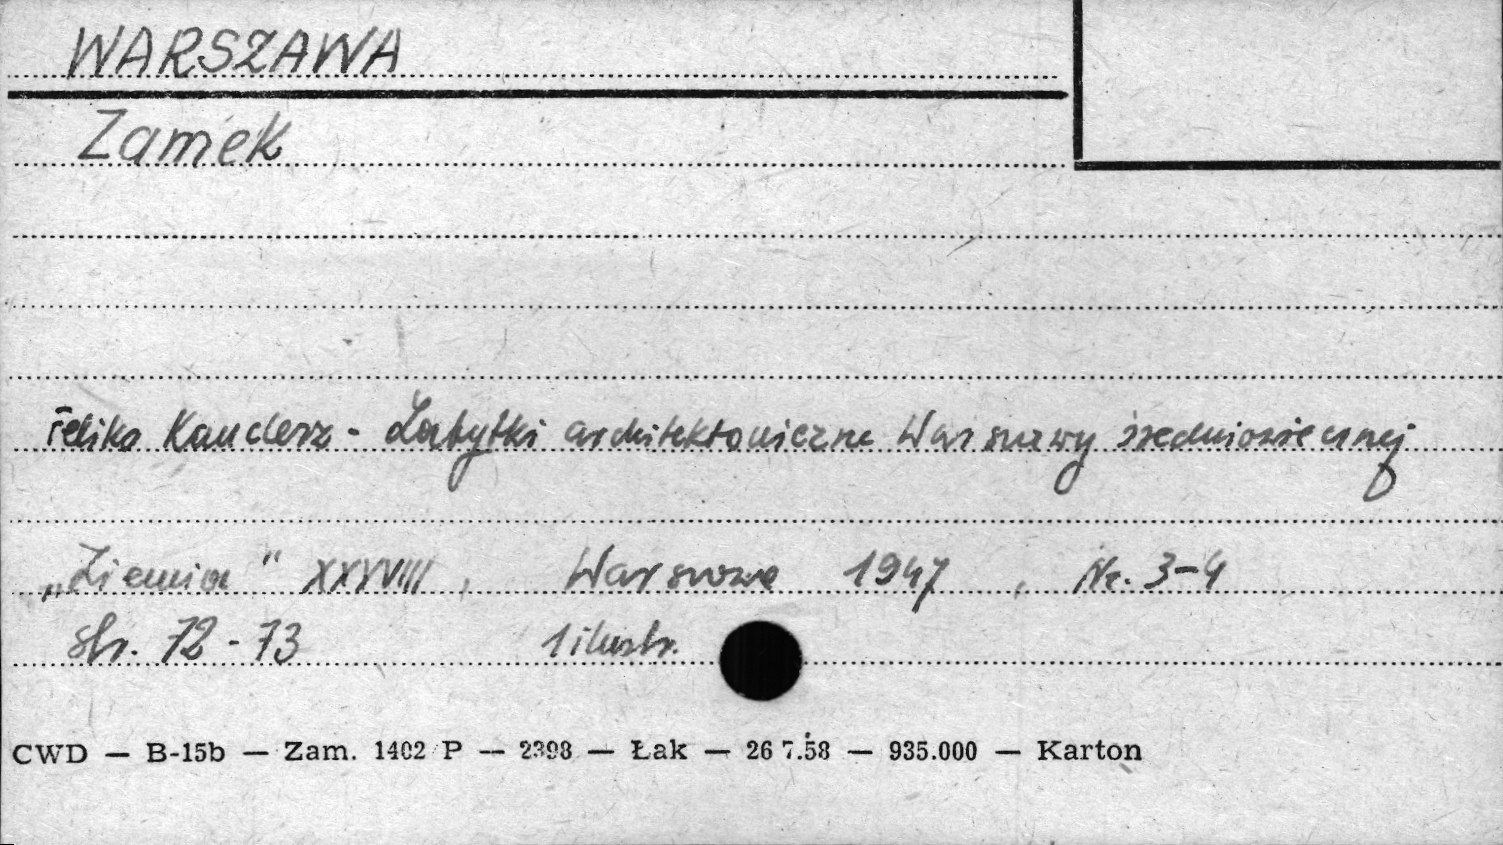 WARSZAWA
Zamek
Feliks Kanclerz - Zabytki architektoniczne Warszawy średniowiecznej
„Ziemia" XXXVIII, Warszawa 1947, Nr. 3-4
str. 72-73 1 ilustr.
CWD — B-15b — Zam. 1402 P — 2398 — Łak — 26 7.58 — 935.000 — Karton